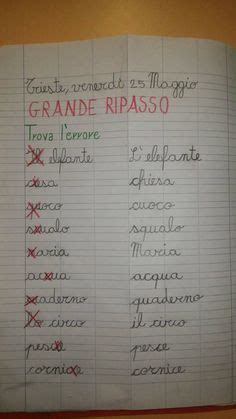 Trieste, venerdì 25 Maggio
GRANDE RIPASSO
Trova l'errore
Il elefante L'elefante
cesa chiesa
quoco cuoco
sualo squalo
maria Maria
acua acqua
cuaderno quaderno
lo circo il circo
pesce pesce
cornice cornice